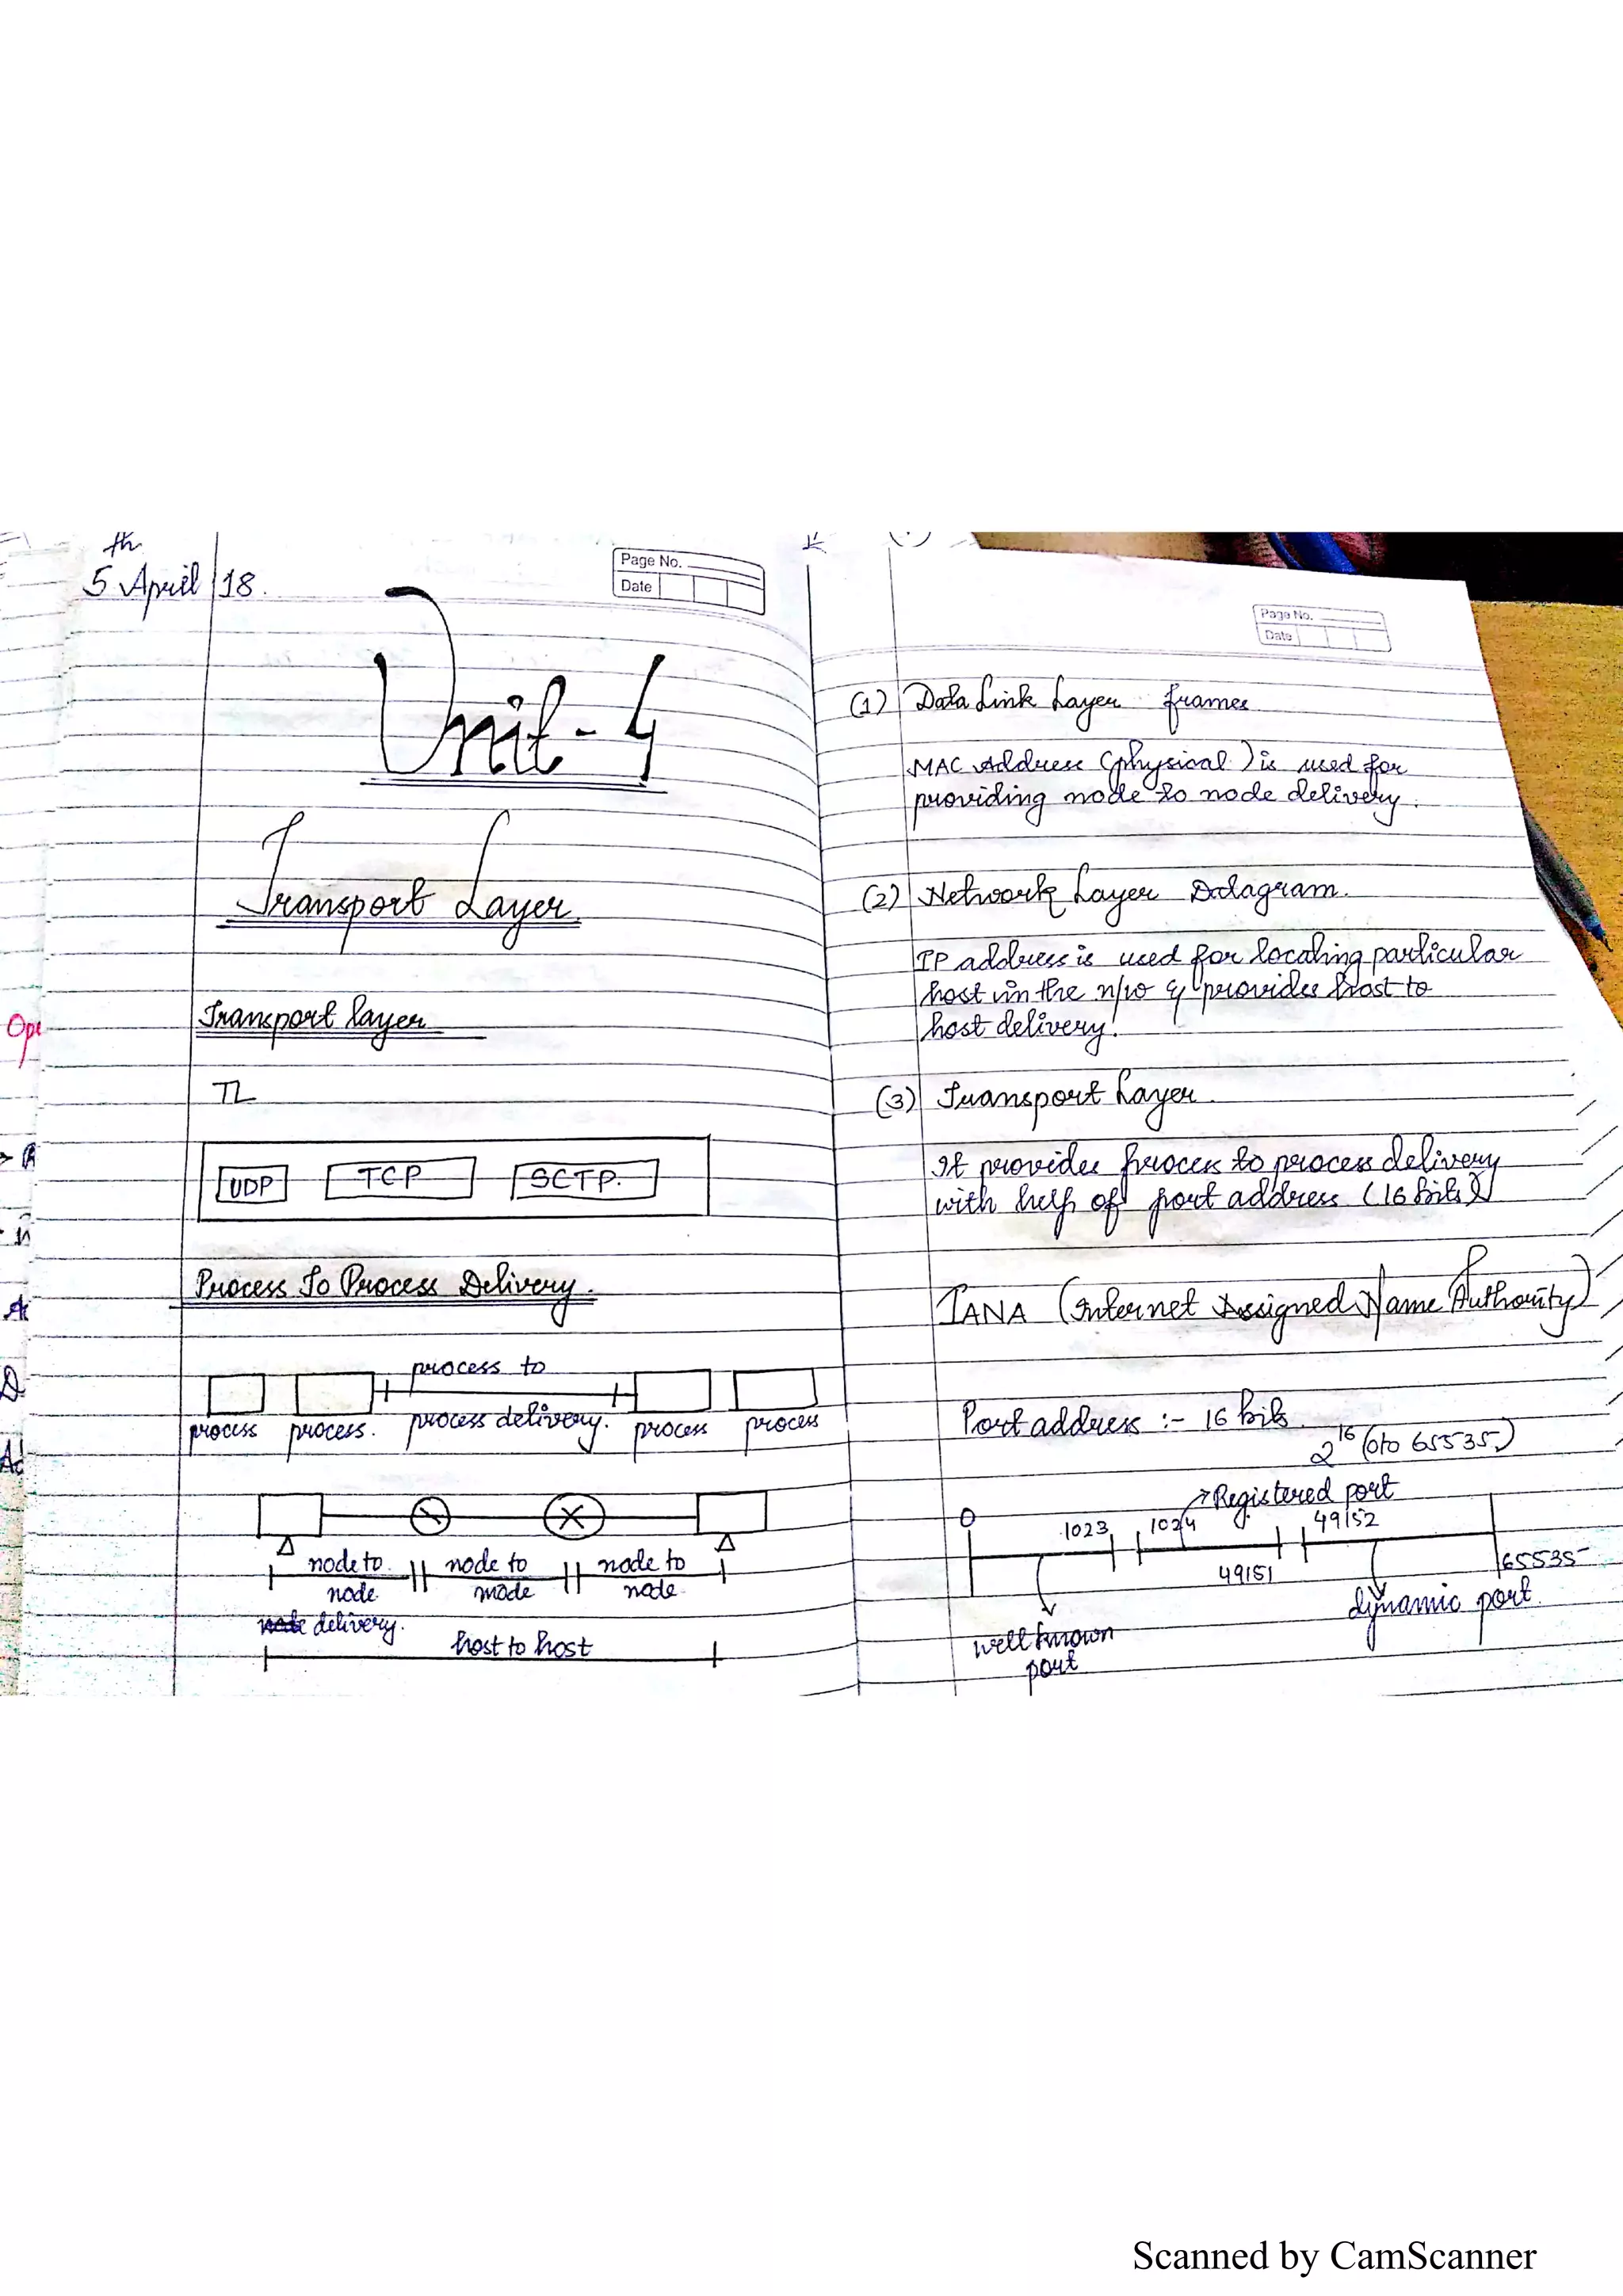 5th April/18.
Page No.
Date
Unit-4
Transport Layer
Transport layer
TL
UDP TCP SCTP.
Process To Process Delivery.
process to
process delivery.
process process. process process
node to node to node to
node node node
delivery.
host to host
Page No.
Date
(1) Data Link Layer frames
MAC Address (physical) is used for
providing node to node delivery.
(2) Network Layer Datagram.
IP address is used for locating particular
host in the n/w & provides host to
host delivery.
(3) Transport Layer.
It provides process to process delivery
with help of port address (16 bits)
IANA (Internet Assigned Name Authority)
Port address :- 16 bits.
2^16 (0 to 65535)
Registered port
0 1023 1024 49152
49151 65535
dynamic port.
well known
port
Ope
Scanned by CamScanner